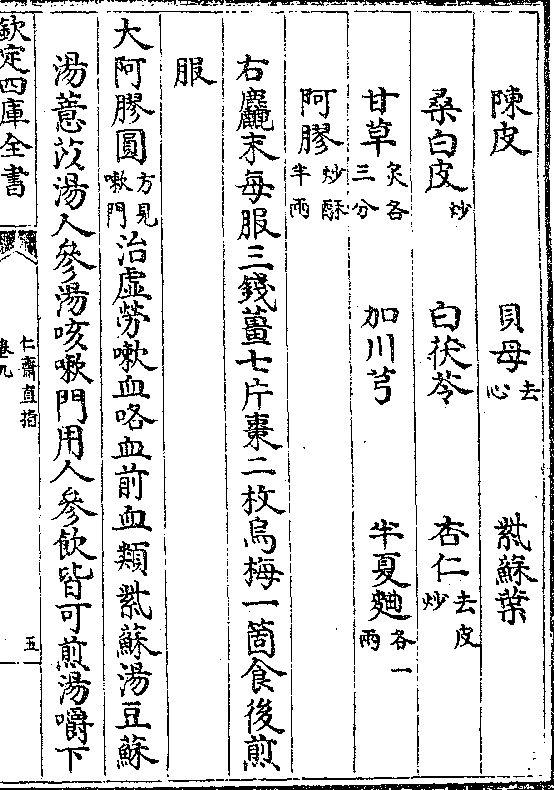 陳皮　貝母去心　紫蘇葉
桑白皮炒　白茯苓　杏仁去皮炒
甘草炙各三分　加川芎　半夏麯各一兩
阿膠炒酥半兩
右麤末每服三錢薑七片棗二枚烏梅一箇食後煎
服
大阿膠圓方見嗽門治虛勞嗽血咯血前血類紫蘇湯豆蘇
湯薏苡湯人參湯咳嗽門用人參飲皆可煎湯嚼下
欽定四庫全書
仁齋直指
卷九
五